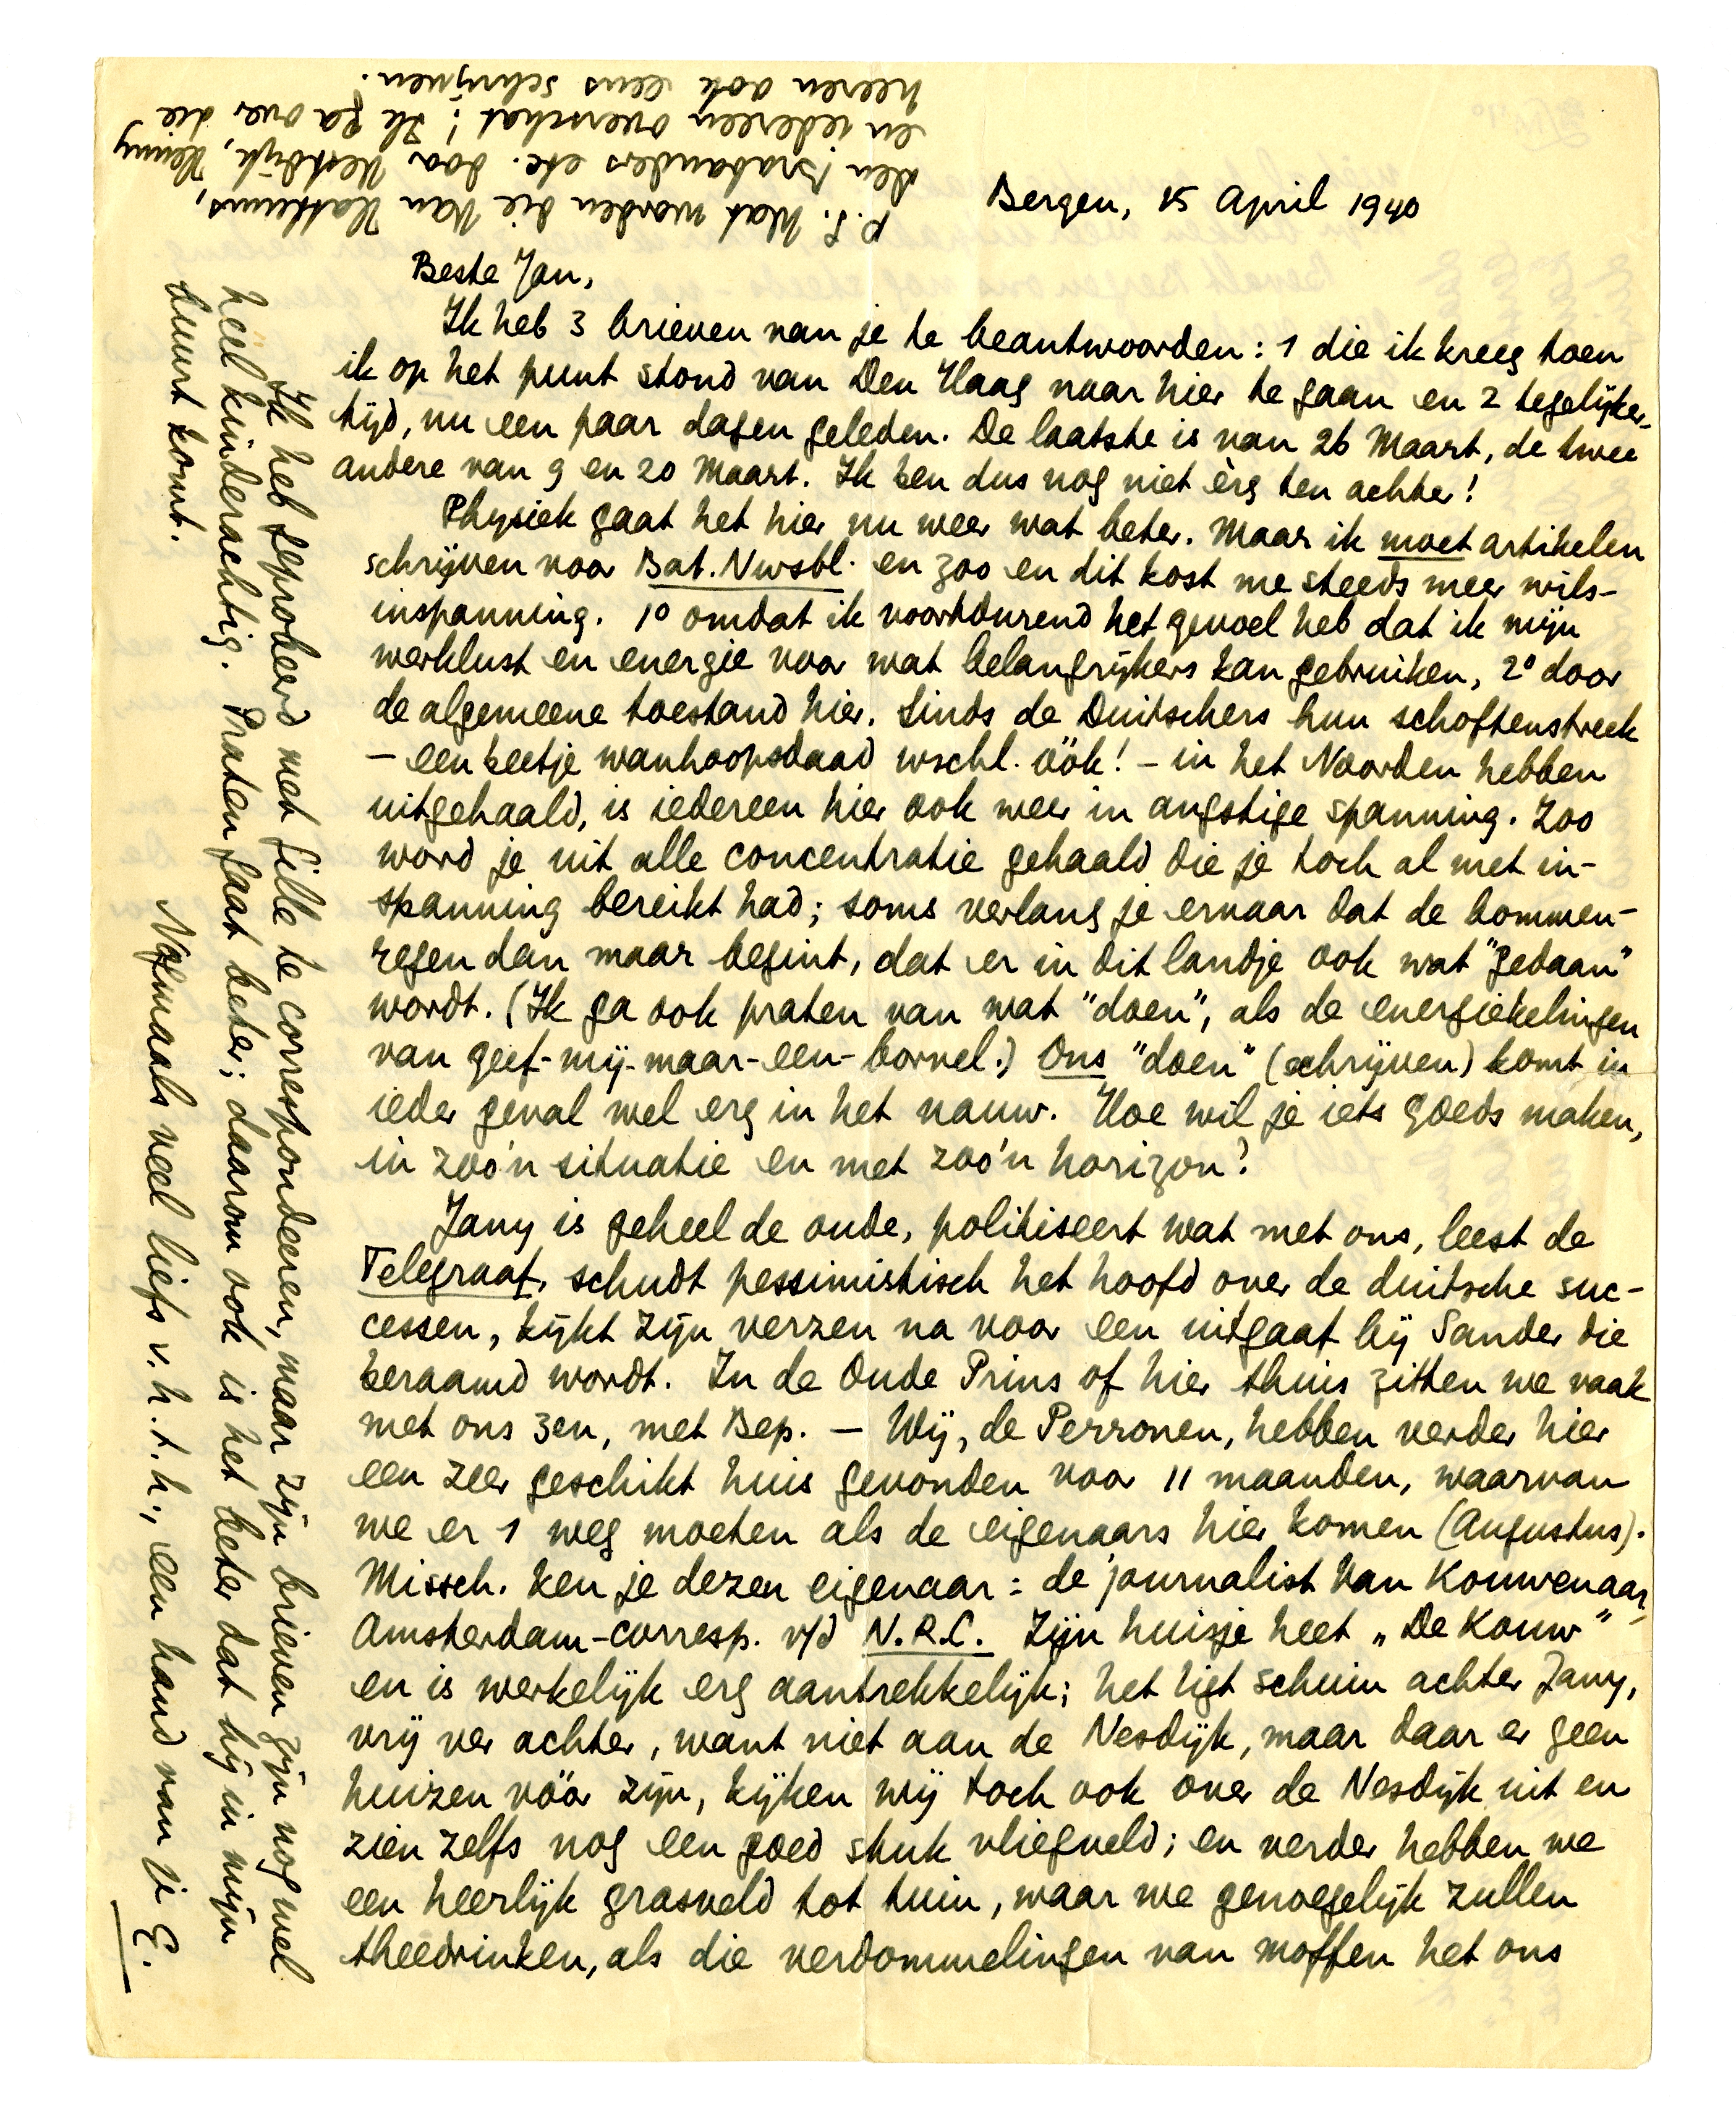 Bergen, 15 April 1940
Beste Jan,
Ik heb 3 brieven van je te beantwoorden: 1 die ik kreeg toen
ik op het punt stond van Den Haag naar hier te gaan en 2 tegelijker-
tijd, nu een paar dagen geleden. De laatste is van 26 Maart, de twee
andere van 9 en 20 Maart. Ik ben dus nog niet èrg ten achter!
Physiek gaat het hier nu weer wat beter. Maar ik moet artikelen
schrijven voor Bat. Nwsbl. en zoo en dit kost me steeds meer wils-
inspanning. 1º omdat ik voortdurend het gevoel heb dat ik mijn
werklust en energie voor wat belangrijkers kan gebruiken, 2º door
de algemeene toestand hier. Sinds de Duitschers hun schoftenstreek
– een beetje wanhoopsdaad wschl. óók! – in het Noorden hebben
uitgehaald, is iedereen hier ook weer in angstige spanning. Zoo
word je uit alle concentratie gehaald die je toch al met in-
spanning bereikt had; soms verlang je ernaar dat de bommen-
regen dan maar begint, dat er in dit landje ook wat "gedaan"
wordt. (Ik ga ook praten van wat "doen", als de energiekelingen
van geef-mij-maar-een-borrel.) Ons "doen" (schrijven) komt in
ieder geval wel erg in het nauw. Hoe wil je iets goeds maken,
in zoo'n situatie en met zoo'n horizon?
Jany is geheel de oude, politiseert wat met ons, leest de
Telegraaf, schudt pessimistisch het hoofd over de duitsche suc-
cessen, kijkt zijn verzen na voor een uitgaaf bij Sander die
beraamd wordt. In de Oude Prins of hier thuis zitten we vaak
met ons 3en, met Bep. — Wij, de Perronen, hebben verder hier
een zeer geschikt huis gevonden voor 11 maanden, waarvan
we er 1 weg moeten als de eigenaars hier komen (Augustus).
Missch. ken je dezen eigenaar: de journalist Van Kouwenaar,
Amsterdam-corresp. v/d N.R.C. Zijn huisje heet „De Kouw"
en is werkelijk erg aantrekkelijk; het ligt schuin achter Jany,
vrij ver achter, want niet aan de Nesdijk, maar daar er geen
huizen vóór zijn, kijken wij toch ook over de Nesdijk uit en
zien zelfs nog een goed stuk vliegveld; en verder hebben we
een heerlijk grasveld tot tuin, waar we genoegelijk zullen
theedrinken, als die verdommelingen van moffen het ons
Ik heb geprobeerd met Gille te correspondeeren, maar zijn brieven zijn nog wel
heel kinderachtig. Praten gaat beter; daarom ook is het beter dat hij in mijn
buurt komt.
Nogmaals veel liefs v. h. t. h., een hand van je E.
P.S. Wat worden die Van Hattums,
den Brabanders etc. door Vestdijk, Henny
en iedereen overschat! Ik ga over die
heeren ook eens schrijven.